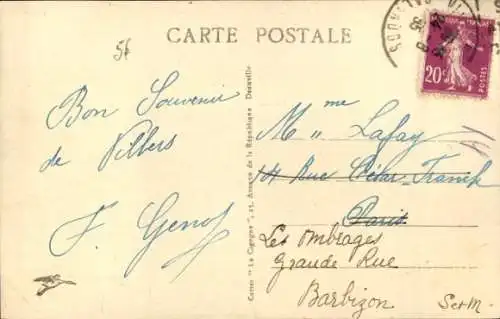 56
CARTE POSTALE
RÉPUBLIQUE FRANÇAISE
20c
POSTES
Bon Souvenir
de Villers
F. Genof
Cartes "La Cigogne", 21, Avenue de la République Deauville
Mme Lafay
14 Rue César-Franck
Paris
Les Ombrages
Grande Rue
Barbizon S et M -